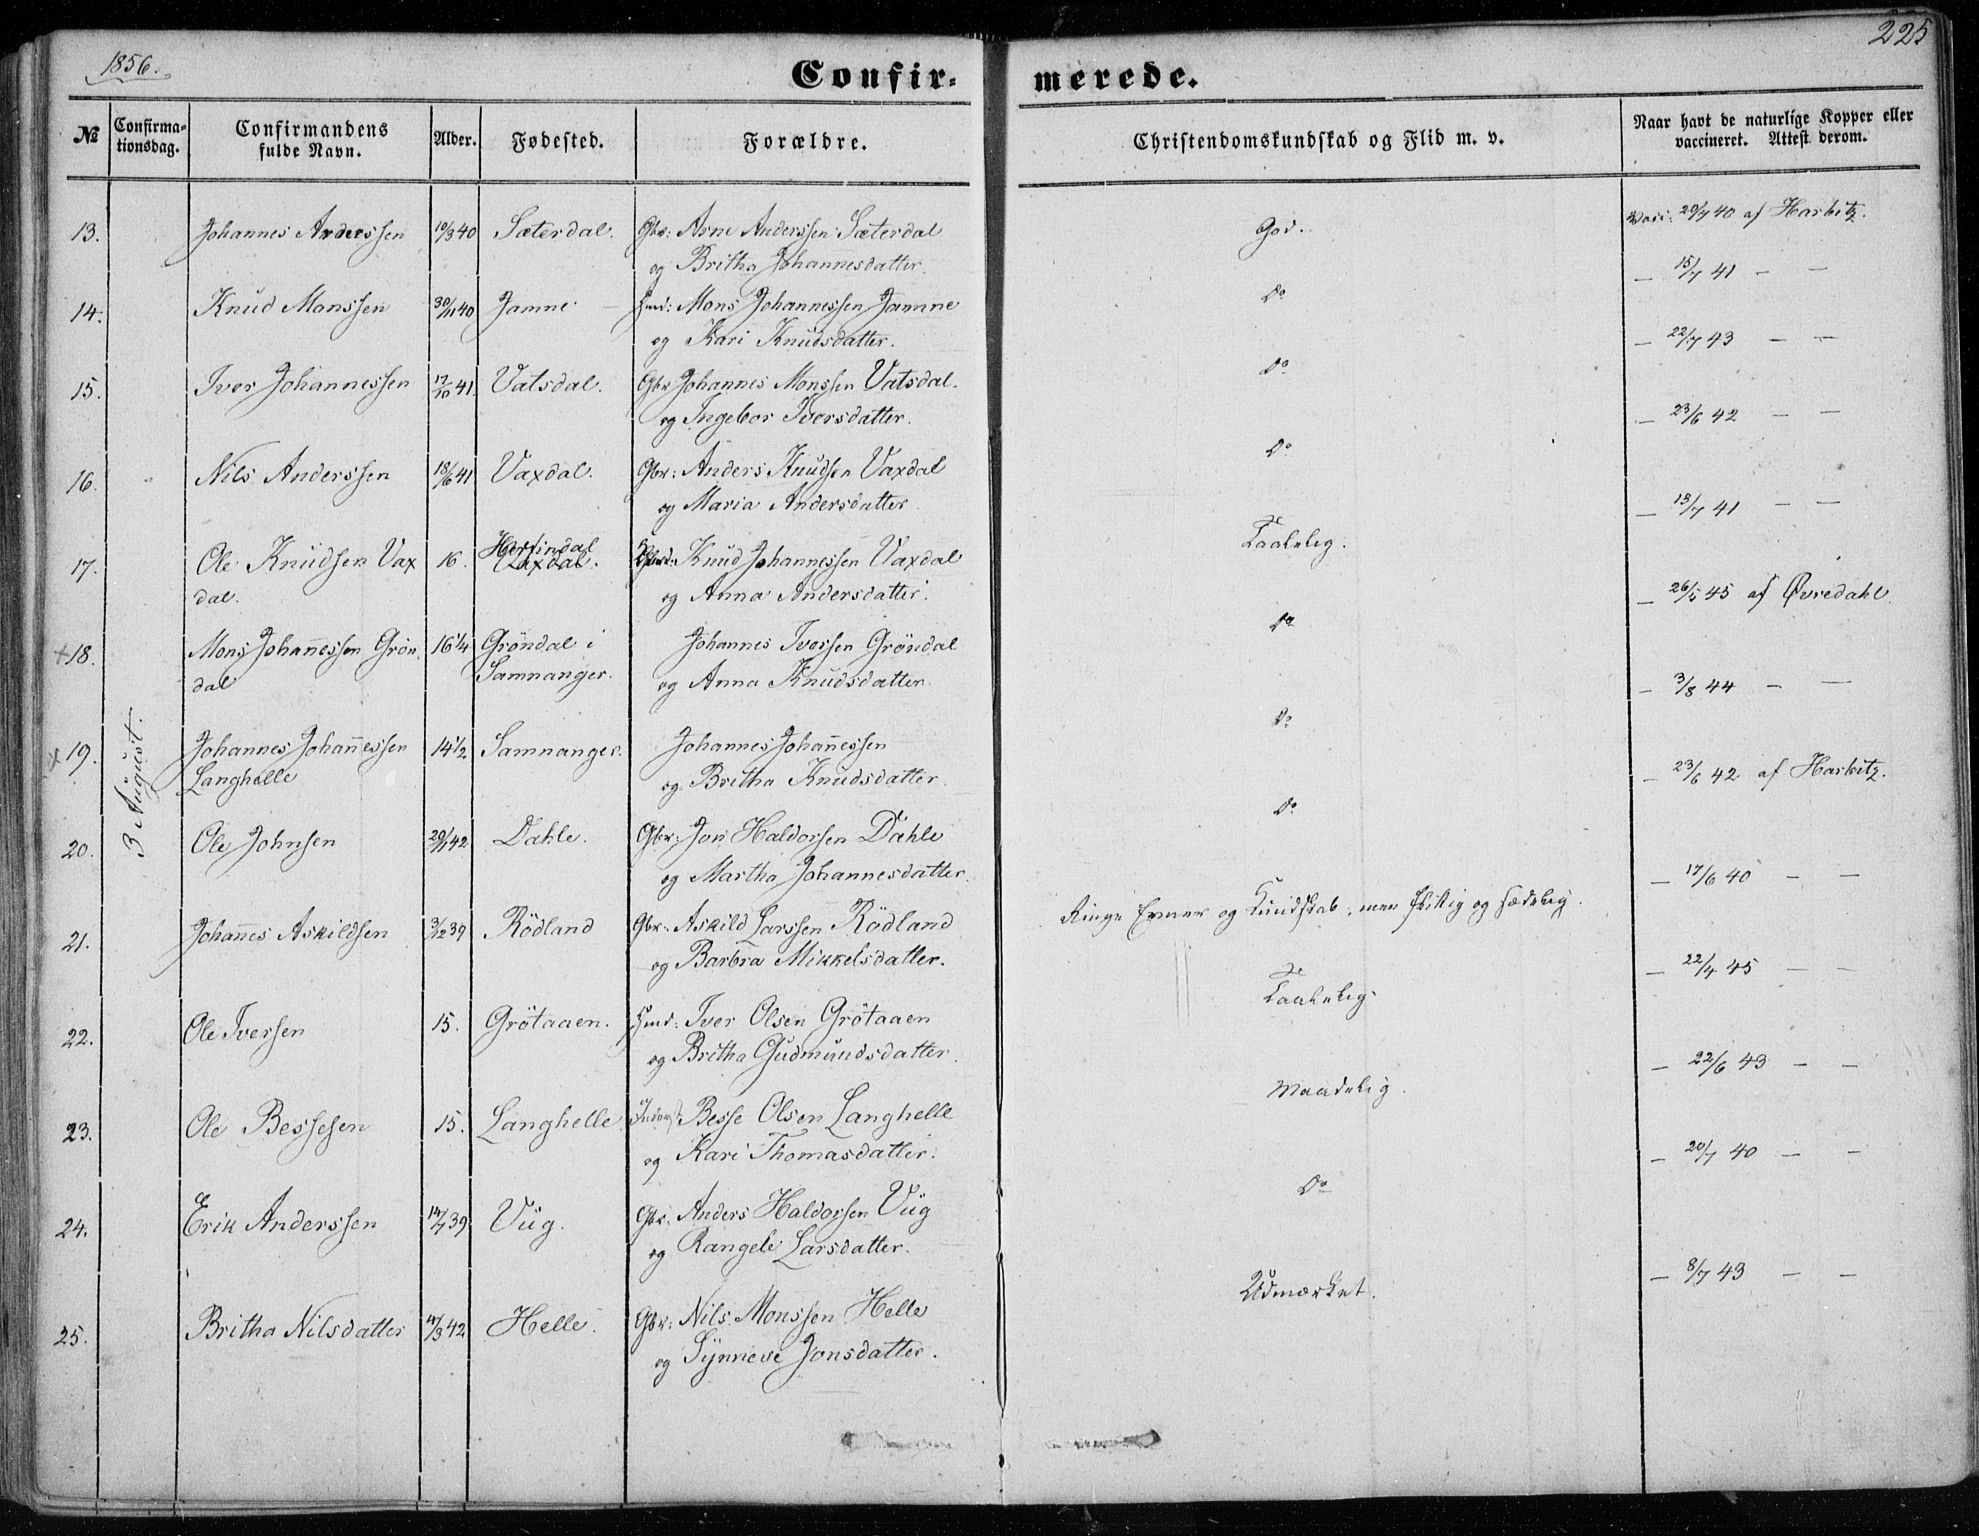 1856.
225
Confir-
merede.
№
Confirma-
tionsdag.
Confirmandens
fulde Navn.
Alder.
Fødested.
Forældre.
Christendomskundskab og Flid m. v.
Naar havt de naturlige Kopper eller
vaccineret. Attest derom.
3 August.
13. Johannes Anderssen 10/3 40 Sæterdal. Gbr: Arne Anderssen Sæterdal God. Vacc: 20/7 40 af Harbitz.
og Britha Johannesdatter.
14. Knud Monssen 30/11 40 Jamne — Hmd: Mons Johannessen Jamne Do — 15/7 41 — —
og Kari Knudsdatter.
15. Iver Johannessen 17/10 41. Vatsdal. Gbr Johannes Monssen Vatsdal. Do — 22/7 43 — —
og Ingebor Iversdatter.
16. Nils Anderssen 18/6 41 Vaxdal. Gbr: Anders Knudsen Vaxdal Do — 23/6 42 — —
og Maria Andersdatter
17. Ole Knudsen Vax 16. Herfindal Knud Johannessen Vaxdal Taalelig. — 13/7 41 — —
dal. Vaxdal. og Anna Andersdatter.
+ 18. Mons Johannessen Grön 16 1/4 Gröndal i Johannes Iversen Gröndal Do — 26/5 45 af Øvredahl
dal Samnanger. og Anna Knudsdatter
+ 19. Johannes Johannessen 14 1/2 Samnanger. Johannes Johannessen Do — 3/8 44 — —
Langhelle og Britha Knudsdatter.
20. Ole Johnsen 29/1 42 Dahle. Gbr: Jon Haldorsen Dahle Do — 23/6 42 af Harbitz.
og Martha Johannesdatter.
21. Johannes Askildsen 3/12 39 Rödland Gbr: Askild Larssen Rödland Ringe Evner og Kundskab, men flittig og sædelig. — 17/6 40 — —
og Barbra Mikkelsdatter.
22. Ole Iversen 15. Grötaaen. Hmd: Iver Olsen Grötaaen Taalelig. — 22/4 45 — —
og Britha Gudmundsdatter.
23. Ole Bessesen 15. Langhelle Inderst: Besse Olsen Langhelle Maadelig. — 22/6 43 — —
og Kari Thomasdatter.
24. Erik Anderssen 14/7 39 Vüg. Gbr: Anders Haldorsen Vüg Do — 20/7 40 — —
og Rangele Larsdatter.
25. Britha Nilsdatter 4/3 42 Helle. Gbr: Nils Monssen Helle Udmærket. — 8/7 43 — —
og Synneve Jonsdatter.